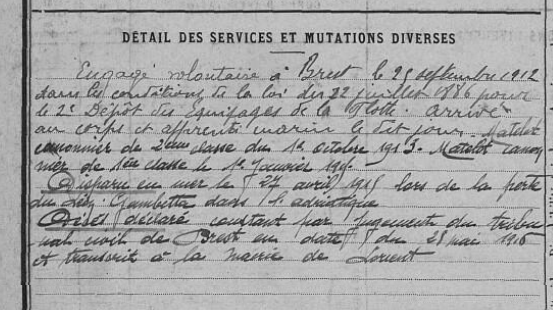 DÉTAIL DES SERVICES ET MUTATIONS DIVERSES
Engagé volontaire à Brest le 25 septembre 1912
dans les conditions de la loi du 22 juillet 1886 pour
le 2e Dépôt des Equipages de la Flotte arrivé
au corps et apprenti marin le dit jour. Matelot
canonnier de 2eme classe du 1er octobre 1913. Matelot canon
nier de 1ère classe le 1er Janvier
Disparu en mer le 27 avril 1915 lors de la perte
du Léon Gambetta dans l'adriatique
Décès déclaré constant par jugement du tribu
nal civil de Brest en date du 28 mai 1916
et transcrit à la mairie de Lorient